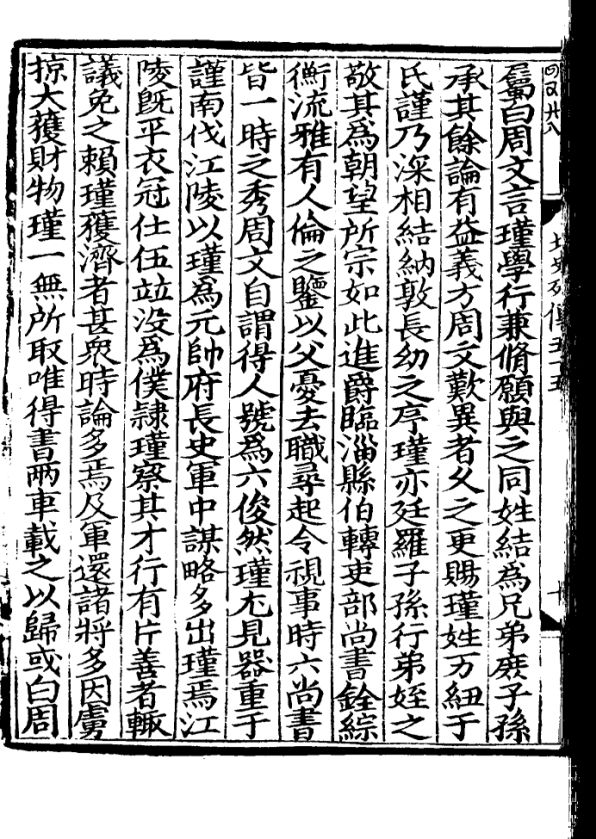 四百卅八
北史列傳五十五
十
屬白周文言瑾學行兼脩願與之同姓結為兄弟庶子孫
承其餘論有益義方周文歎異者久之更賜瑾姓万紐于
氏謹乃深相結納敦長幼之序瑾亦廷羅子孫行弟姪之
敬其為朝望所宗如此進爵臨淄縣伯轉吏部尚書銓綜
衡流雅有人倫之鑒以父憂去職尋起令視事時六尚書
皆一時之秀周文自謂得人號為六俊然瑾尤見器重于
謹南伐江陵以瑾為元帥府長史軍中謀略多出瑾焉江
陵既平衣冠仕伍竝没為僕隷瑾察其才行有片善者輙
議免之賴瑾獲濟者甚衆時論多焉及軍還諸將多因虜
掠大獲財物瑾一無所取唯得書兩車載之以歸或白周